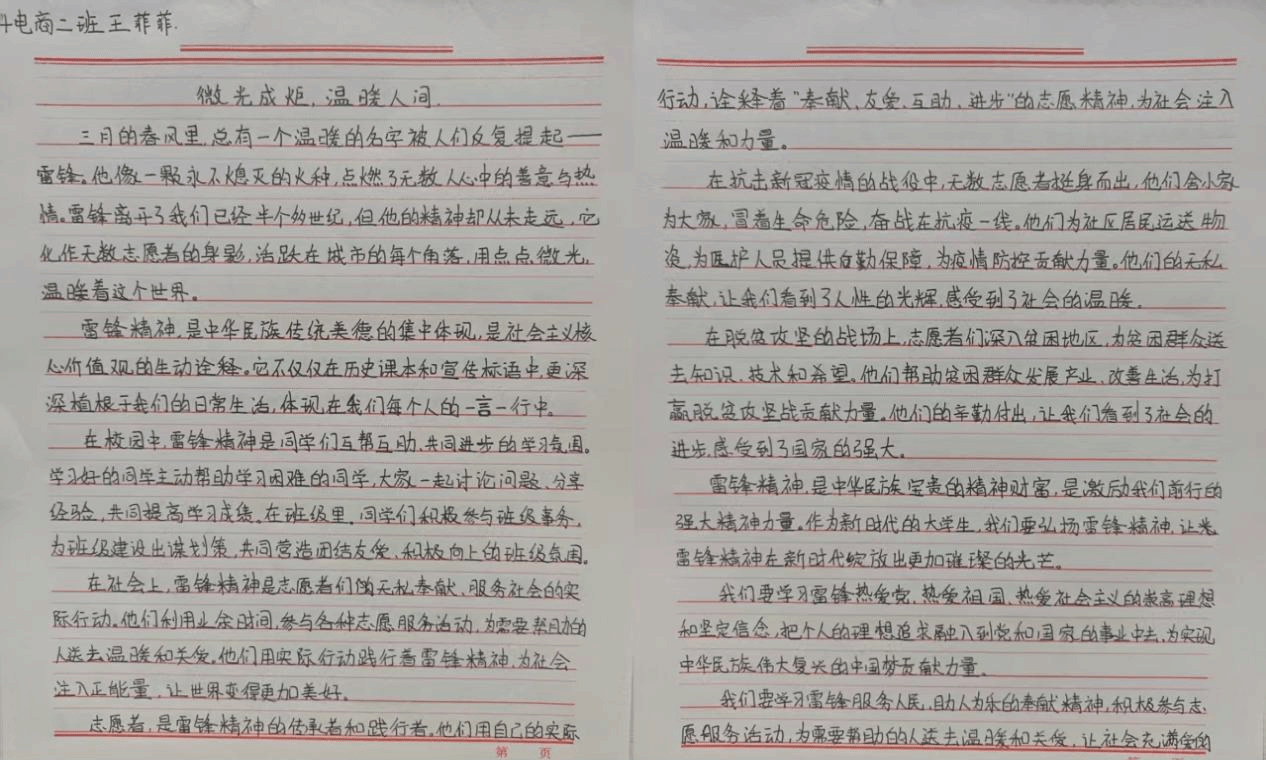 电商二班王菲菲.
微光成炬，温暖人间.
三月的春风里，总有一个温暖的名字被人们反复提起——
雷锋。他像一颗永不熄灭的火种，点燃了无数人心中的善意与热
情。雷锋离开了我们已经半个多世纪，但他的精神却从未走远，它
化作无数志愿者的身影，活跃在城市的每个角落，用点点微光，
温暖着这个世界。
雷锋精神，是中华民族传统美德的集中体现，是社会主义核
心价值观的生动诠释。它不仅仅在历史课本和宣传标语中，更深
深植根于我们的日常生活，体现在我们每个人的一言一行中。
在校园中，雷锋精神是同学们互帮互助、共同进步的学习氛围。
学习好的同学主动帮助学习困难的同学，大家一起讨论问题、分享
经验，共同提高学习成绩。在班级里，同学们积极参与班级事务，
为班级建设出谋划策，共同营造团结友爱、积极向上的班级氛围。
在社会上，雷锋精神是志愿者们的无私奉献、服务社会的实
际行动。他们利用业余时间，参与各种志愿服务活动，为需要帮助的
人送去温暖和关爱。他们用实际行动践行着雷锋精神，为社会
注入正能量，让世界变得更加美好。
志愿者，是雷锋精神的传承者和践行者。他们用自己的实际
第 页
行动，诠释着“奉献、友爱、互助、进步”的志愿精神，为社会注入
温暖和力量。
在抗击新冠疫情的战役中，无数志愿者挺身而出，他们舍小家
为大家，冒着生命危险，奋战在抗疫一线。他们为社区居民运送物
资，为医护人员提供后勤保障，为疫情防控贡献力量。他们的无私
奉献，让我们看到了人性的光辉，感受到了社会的温暖。
在脱贫攻坚的战场上，志愿者们深入贫困地区，为贫困群众送
去知识、技术和希望。他们帮助贫困群众发展产业、改善生活，为打
赢脱贫攻坚战贡献力量。他们的辛勤付出，让我们看到了社会的
进步，感受到了国家的强大。
雷锋精神，是中华民族宝贵的精神财富，是激励我们前行的
强大精神力量。作为新时代的大学生，我们要弘扬雷锋精神，让
雷锋精神在新时代绽放出更加璀璨的光芒。
我们要学习雷锋热爱党、热爱祖国、热爱社会主义的崇高理想
和坚定信念，把个人的理想追求融入到党和国家的事业中去，为实现
中华民族伟大复兴的中国梦贡献力量。
我们要学习雷锋服务人民、助人为乐的奉献精神，积极参与志
愿服务活动，为需要帮助的人送去温暖和关爱，让社会充满爱的